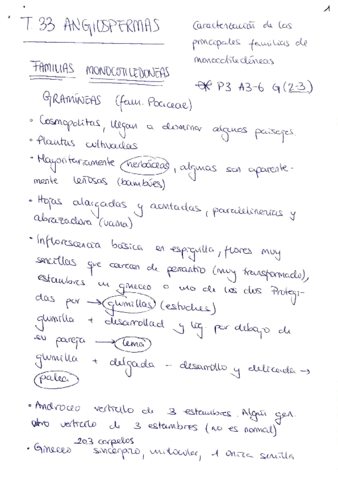 1
T 33 ANGIOSPERMAS
Caracterización de las
principales familias de
monocotiledóneas
FAMILIAS MONOCOTILEDONEAS
P3 A3-6 G(2-3)
GRAMÍNEAS (fam. Poaceae)
• Cosmopolitas, llegan a dominar algunos paisajes.
• Plantas cultivadas
• Mayoritariamente herbáceas, algunas son aparente-
mente leñosas (bambúes)
• Hojas alargadas y acintadas, paralelinervias y
abrazadora (vaina)
• Inflorescencia básica en espiguilla, flores muy
sencillas que carecen de periantio (muy transformado),
estambres un gineceo o uno de los dos Protegi-
das por → glumillas (estuches)
glumilla + desarrollad y lig. por debajo de
su pareja → lema
glumilla + delgada - desarrollo y delicada →
palea
• Androceo verticilo de 3 estambres. Algún gen
otro verticilo de 3 estambres (no es normal)
2 o 3 carpelos
• Gineceo sincárpico, unilocular, 1 única semilla